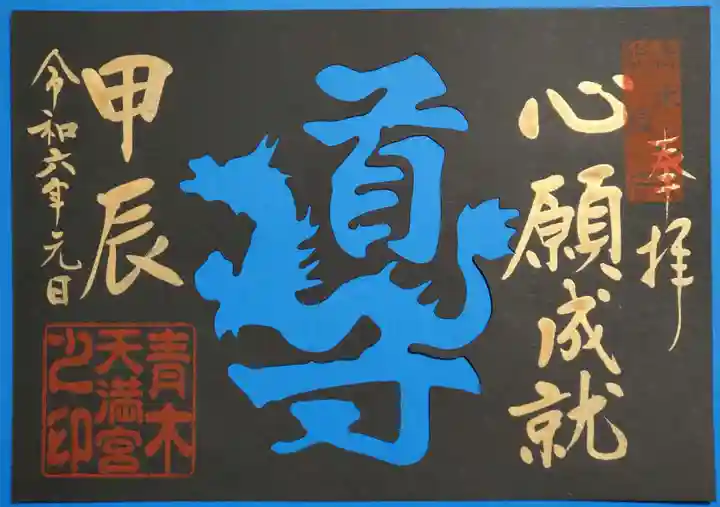 奉拝
心願成就
導
甲辰
令和六年元日
青木
天満宮
之印